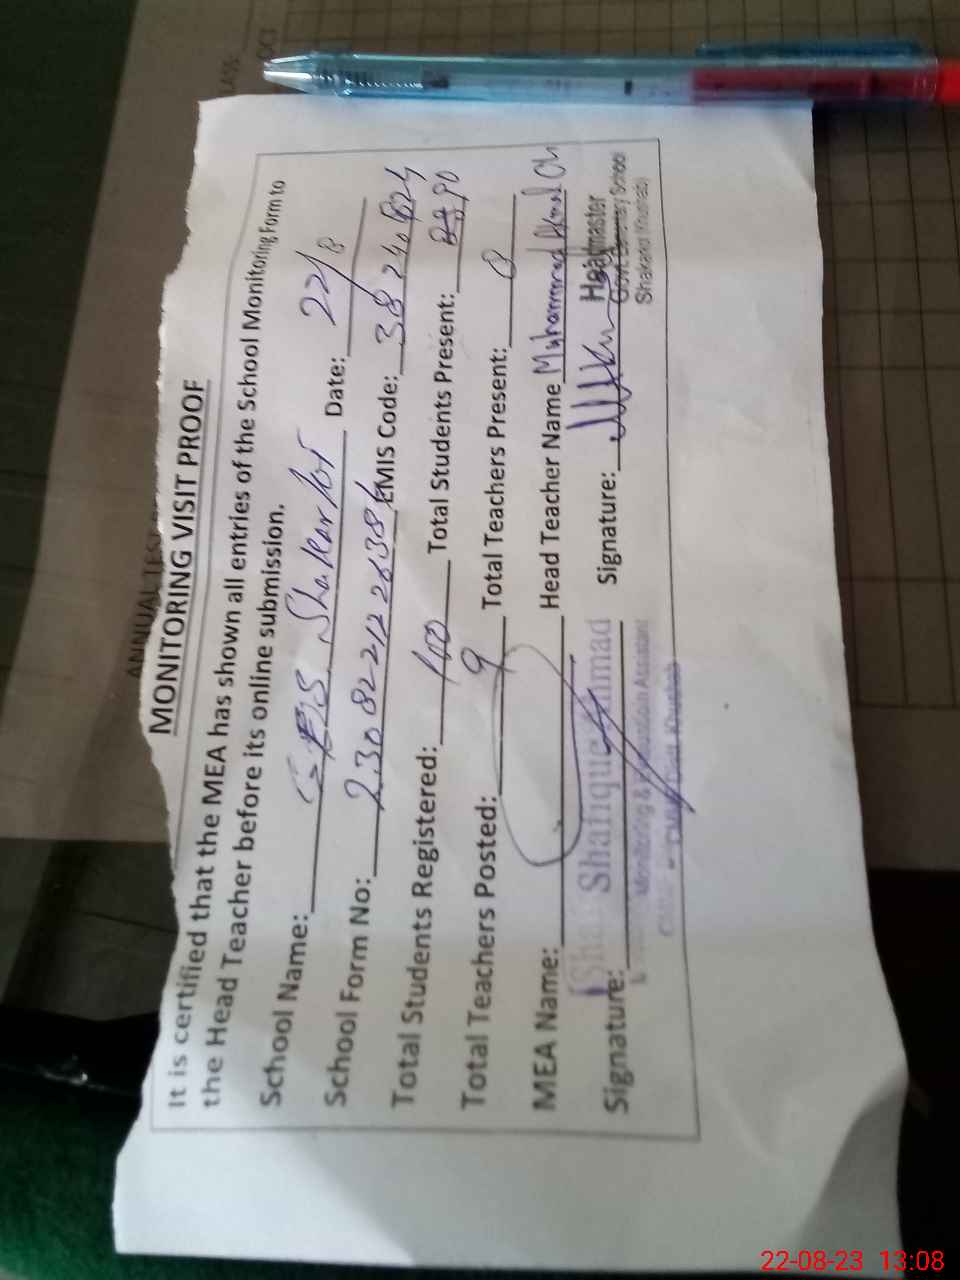 ANNUAL TEST
LASS:
OCT
MONITORING VISIT PROOF
It is certified that the MEA has shown all entries of the School Monitoring Form to
the Head Teacher before its online submission.
School Name: Date: 22/8
School Form No: EMIS Code: 38240
Total Students Registered: 100 Total Students Present: 90
Total Teachers Posted: 9 Total Teachers Present: 8
MEA Name: Head Teacher Name Muhammad
Signature: Signature:
Shafique Ahmad
Monitoring & Evaluation Assistant
Headmaster
Govt. School
22-08-23 13:08